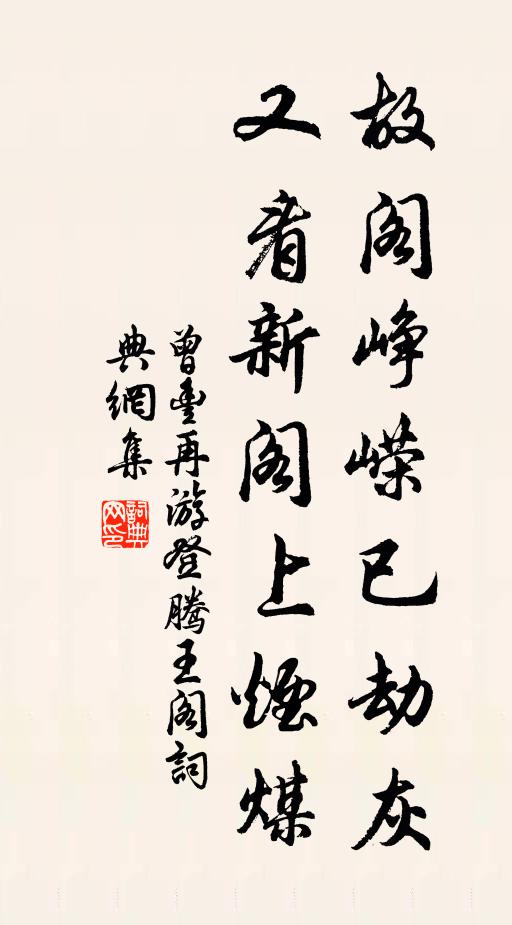 故阁峥嵘已劫灰
又看新阁上煙煤
曾豊再游登腾王阁詞
典網集
詞典网印